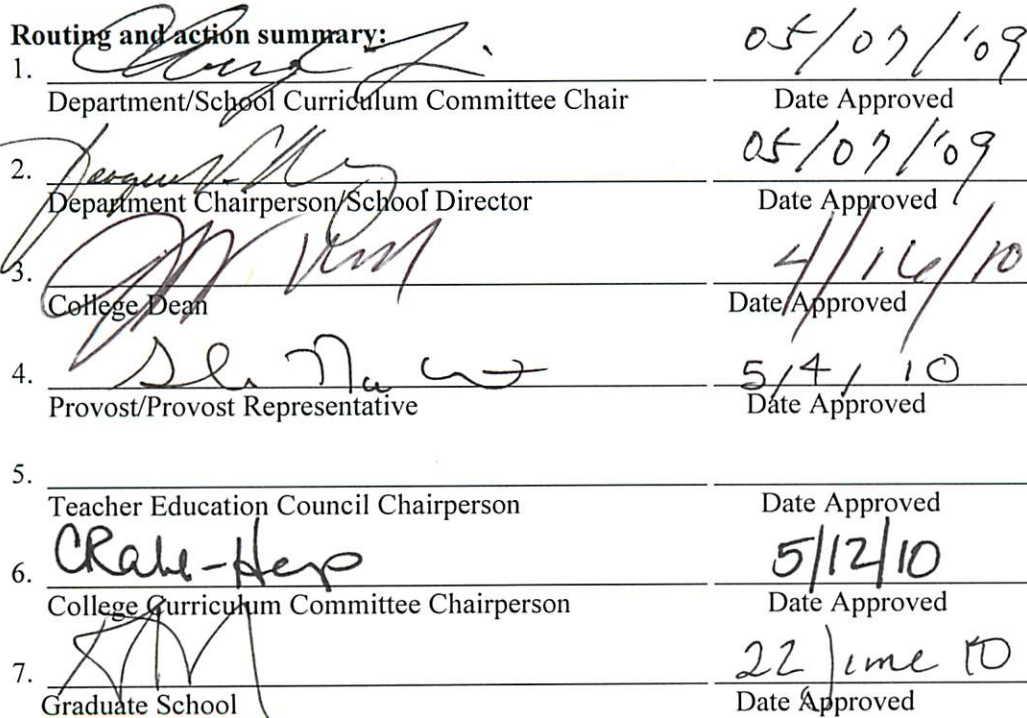 Routing and action summary:
1. 05/07/'09
Department/School Curriculum Committee Chair Date Approved
2. 05/07/'09
Department Chairperson/School Director Date Approved
3. 4/16/10
College Dean Date Approved
4. 5/4/10
Provost/Provost Representative Date Approved
5.
Teacher Education Council Chairperson Date Approved
6. 5/12/10
College Curriculum Committee Chairperson Date Approved
7. 22 June 10
Graduate School Date Approved